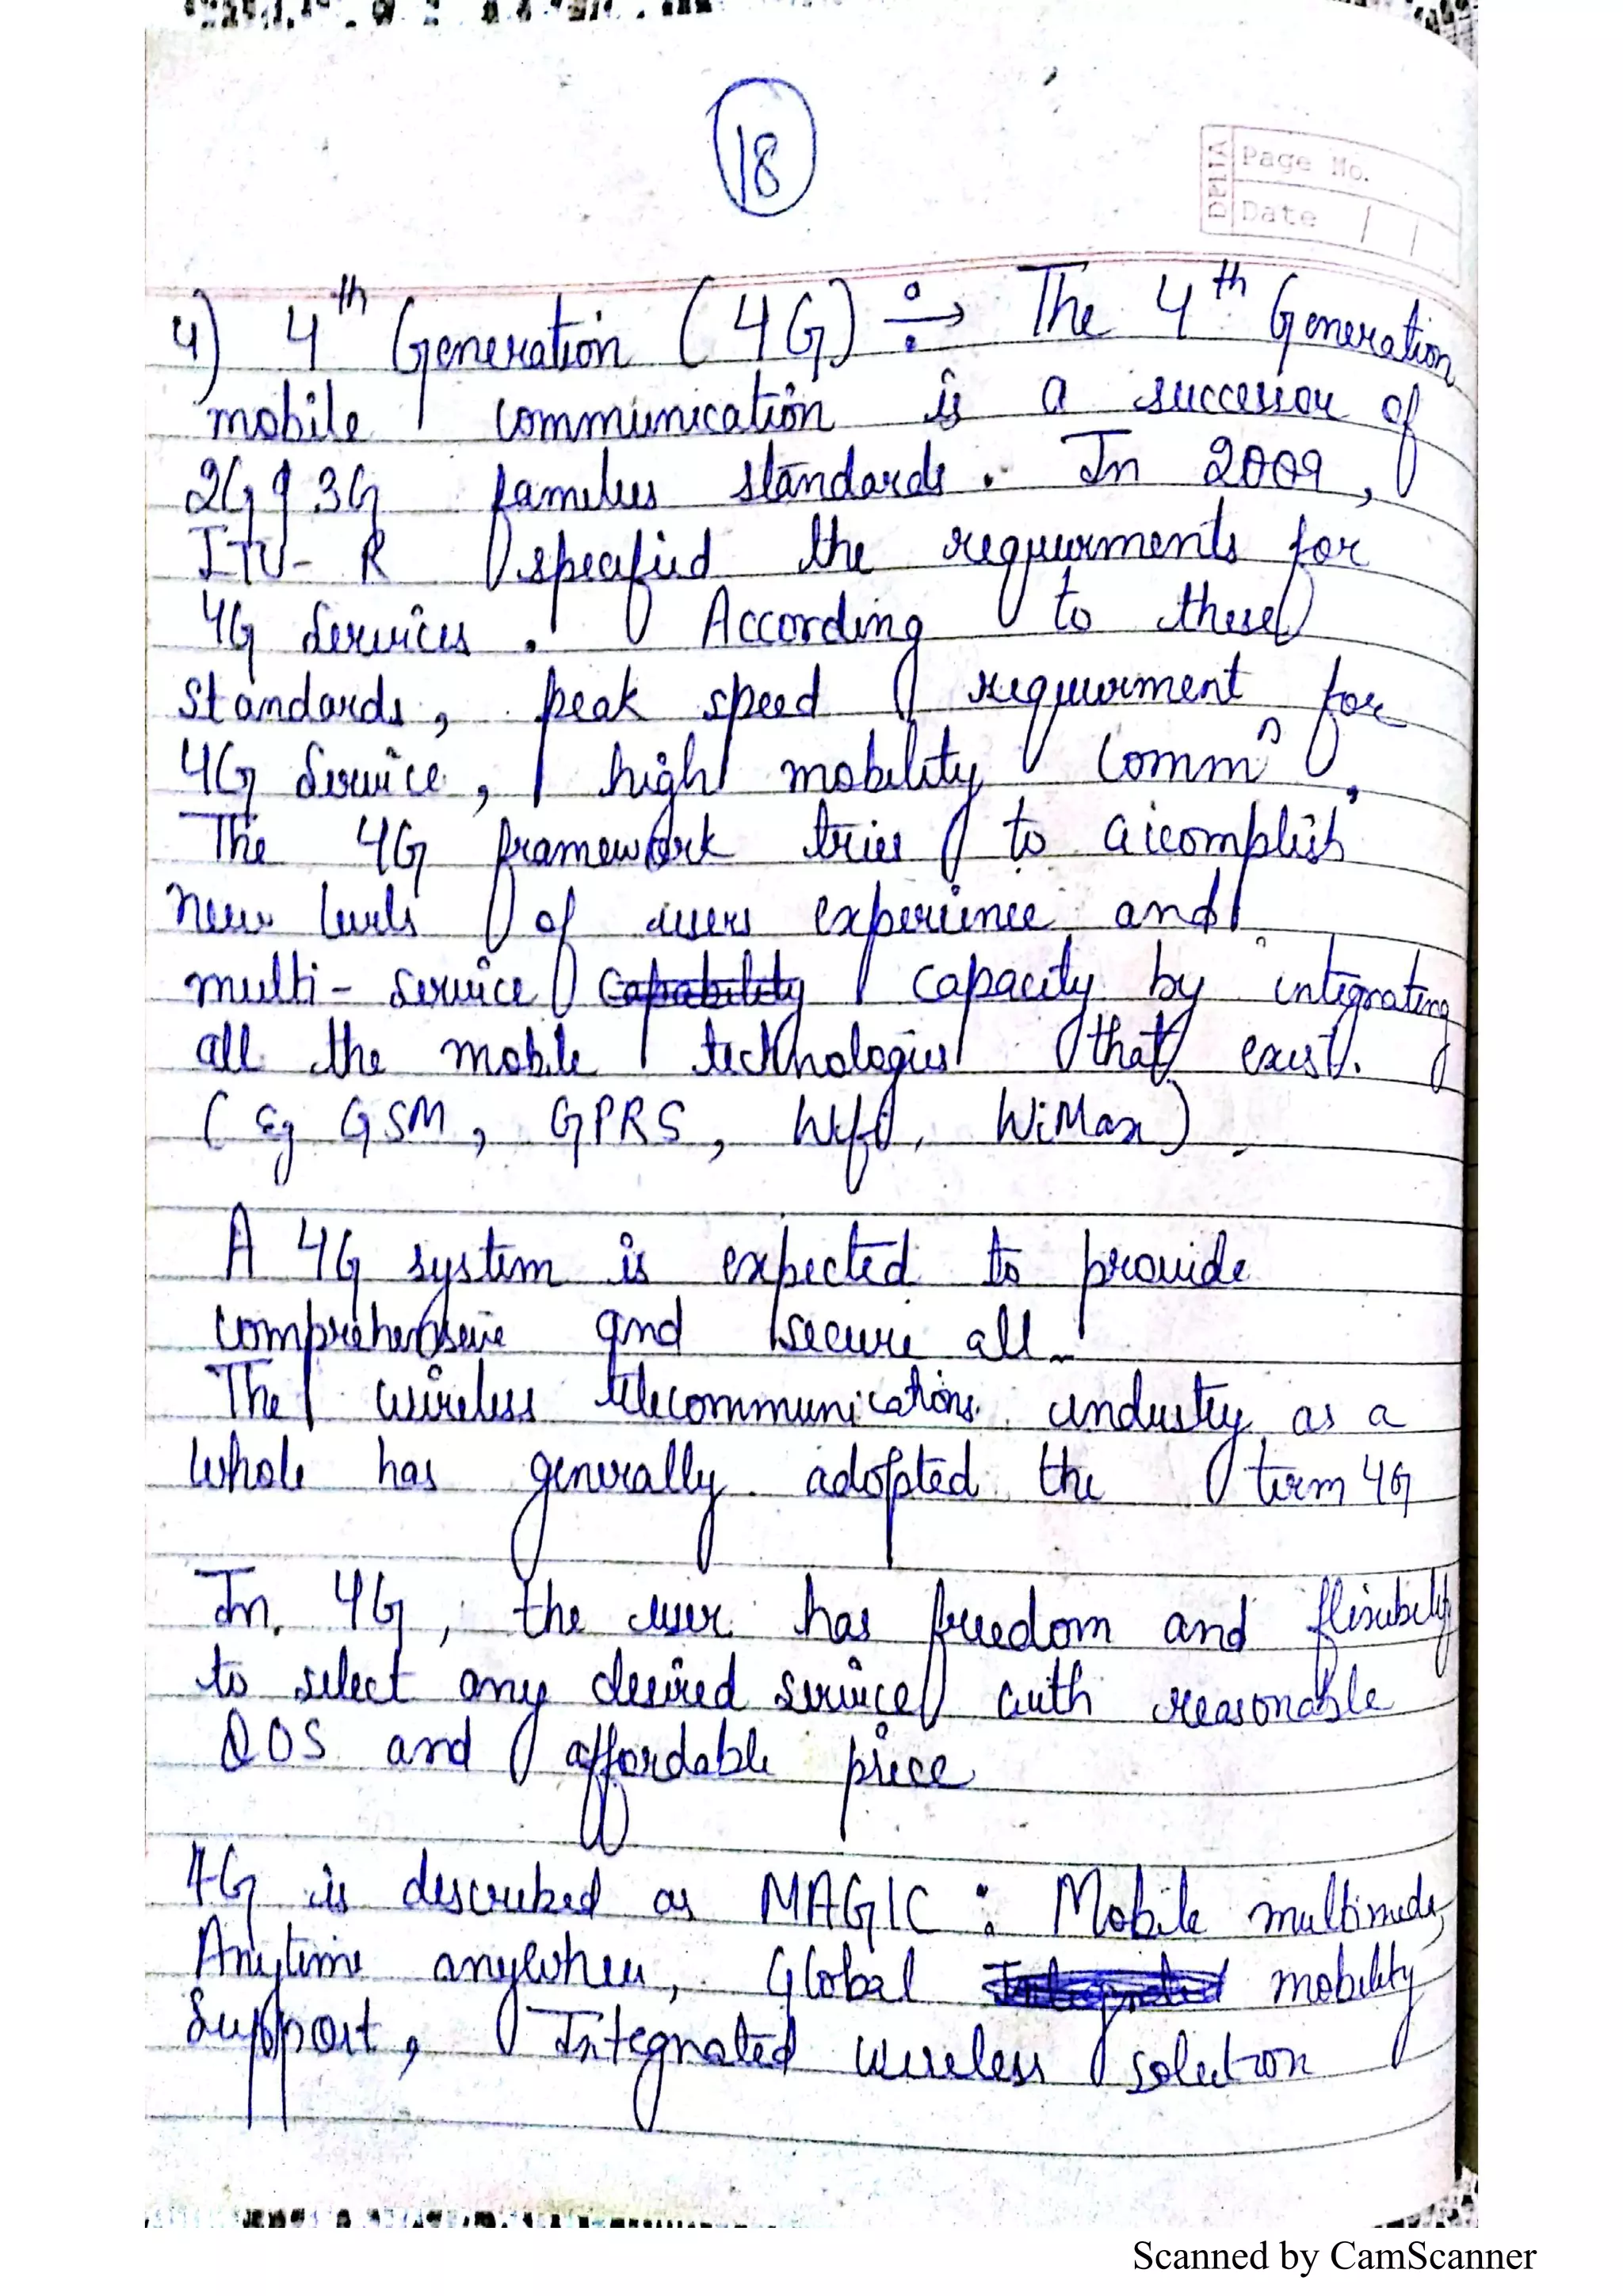 18
DELTA
Page No.
Date / /
4) 4th Generation (4G) ÷→ The 4th Generation
mobile communication is a successor of
2G & 3G families standards. In 2009,
ITU-R specified the requirments for
4G Services. According to these
standards, peak speed requirment for
4G Service, high mobility Commn,
The 4G framework tries to accomplish
new levels of users experience and
multi-service capability capacity by integrating
all the mobile technologies that exist.
(Eg GSM, GPRS, Wifi, WiMax).
A 4G system is expected to provide
comprehensive and secure all
The wireless telecommunications industry as a
whole has generally adopted the term 4G
In 4G, the user has freedom and flexibility
to select any desired service with reasonable
QOS and affordable price
4G is described as MAGIC : Mobile multimedia,
Anytime anywhere, Global mobility
Support, Integrated wireless solution
Scanned by CamScanner